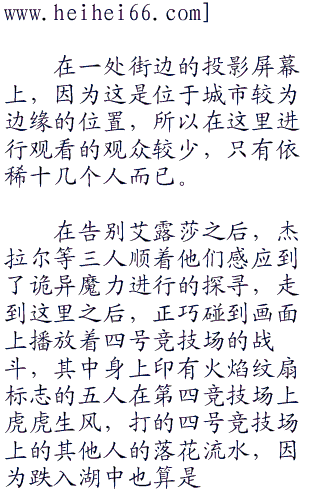 www.heihei66.com]
在一处街边的投影屏幕
上，因为这是位于城市较为
边缘的位置，所以在这里进
行观看的观众较少，只有依
稀十几个人而已。
在告别艾露莎之后，杰
拉尔等三人顺着他们感应到
了诡异魔力进行的探寻，走
到这里之后，正巧碰到画面
上播放着四号竞技场的战
斗，其中身上印有火焰纹扇
标志的五人在第四竞技场上
虎虎生风，打的四号竞技场
上的其他人的落花流水，因
为跌入湖中也算是